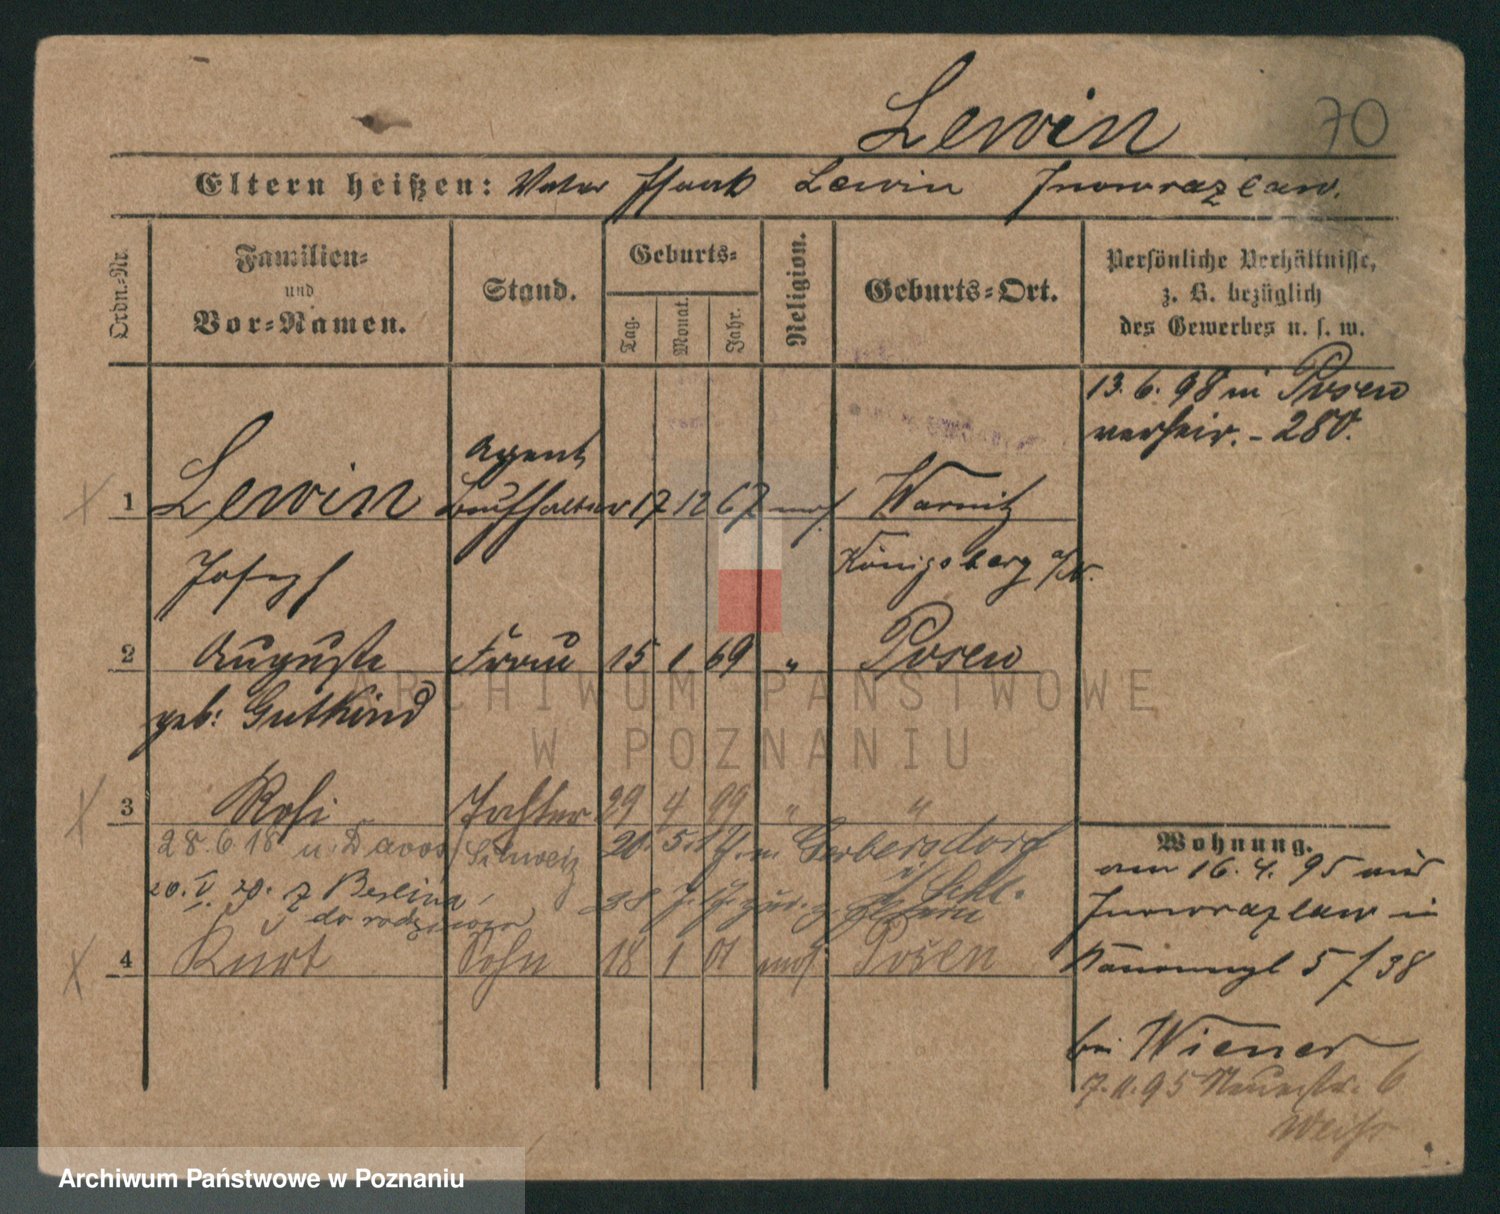 Lewin
70
Eltern heißen: Vater Isaak Lewin Inowrazlaw.
Ordn.-Nr.
Familien- und Vor-Namen.
Stand.
Geburts-
Tag.
Monat.
Jahr.
Religion.
Geburts-Ort.
Persönliche Verhältnisse,
z. B. bezüglich
des Gewerbes u. s. w.
13. 6. 98 in Posen
verheir. - 280.
Agent
1 Lewin Buchhalter 17 12 67 mos. Warnitz
Joseph Königsberg a/N.
2 Auguste Frau 15 1 69 " Posen
geb: Gutkind
3 Rosi Tochter 29 4 99 " "
28. 6 18 u. Davos / Schweiz 20. 5. 17. n. Görbersdorf
20. V. 20. z Berlina, i/ Schl.
do rodziców
4 Kurt Sohn 18 1 01 mos. Posen
Wohnung.
am 16. 4. 95 aus
Inowrazlaw in
5 / 38
bei Wiener
7. 11. 95 Neuestr. 6
Weiss
ARCHIWUM PAŃSTWOWE
W POZNANIU
Archiwum Państwowe w Poznaniu